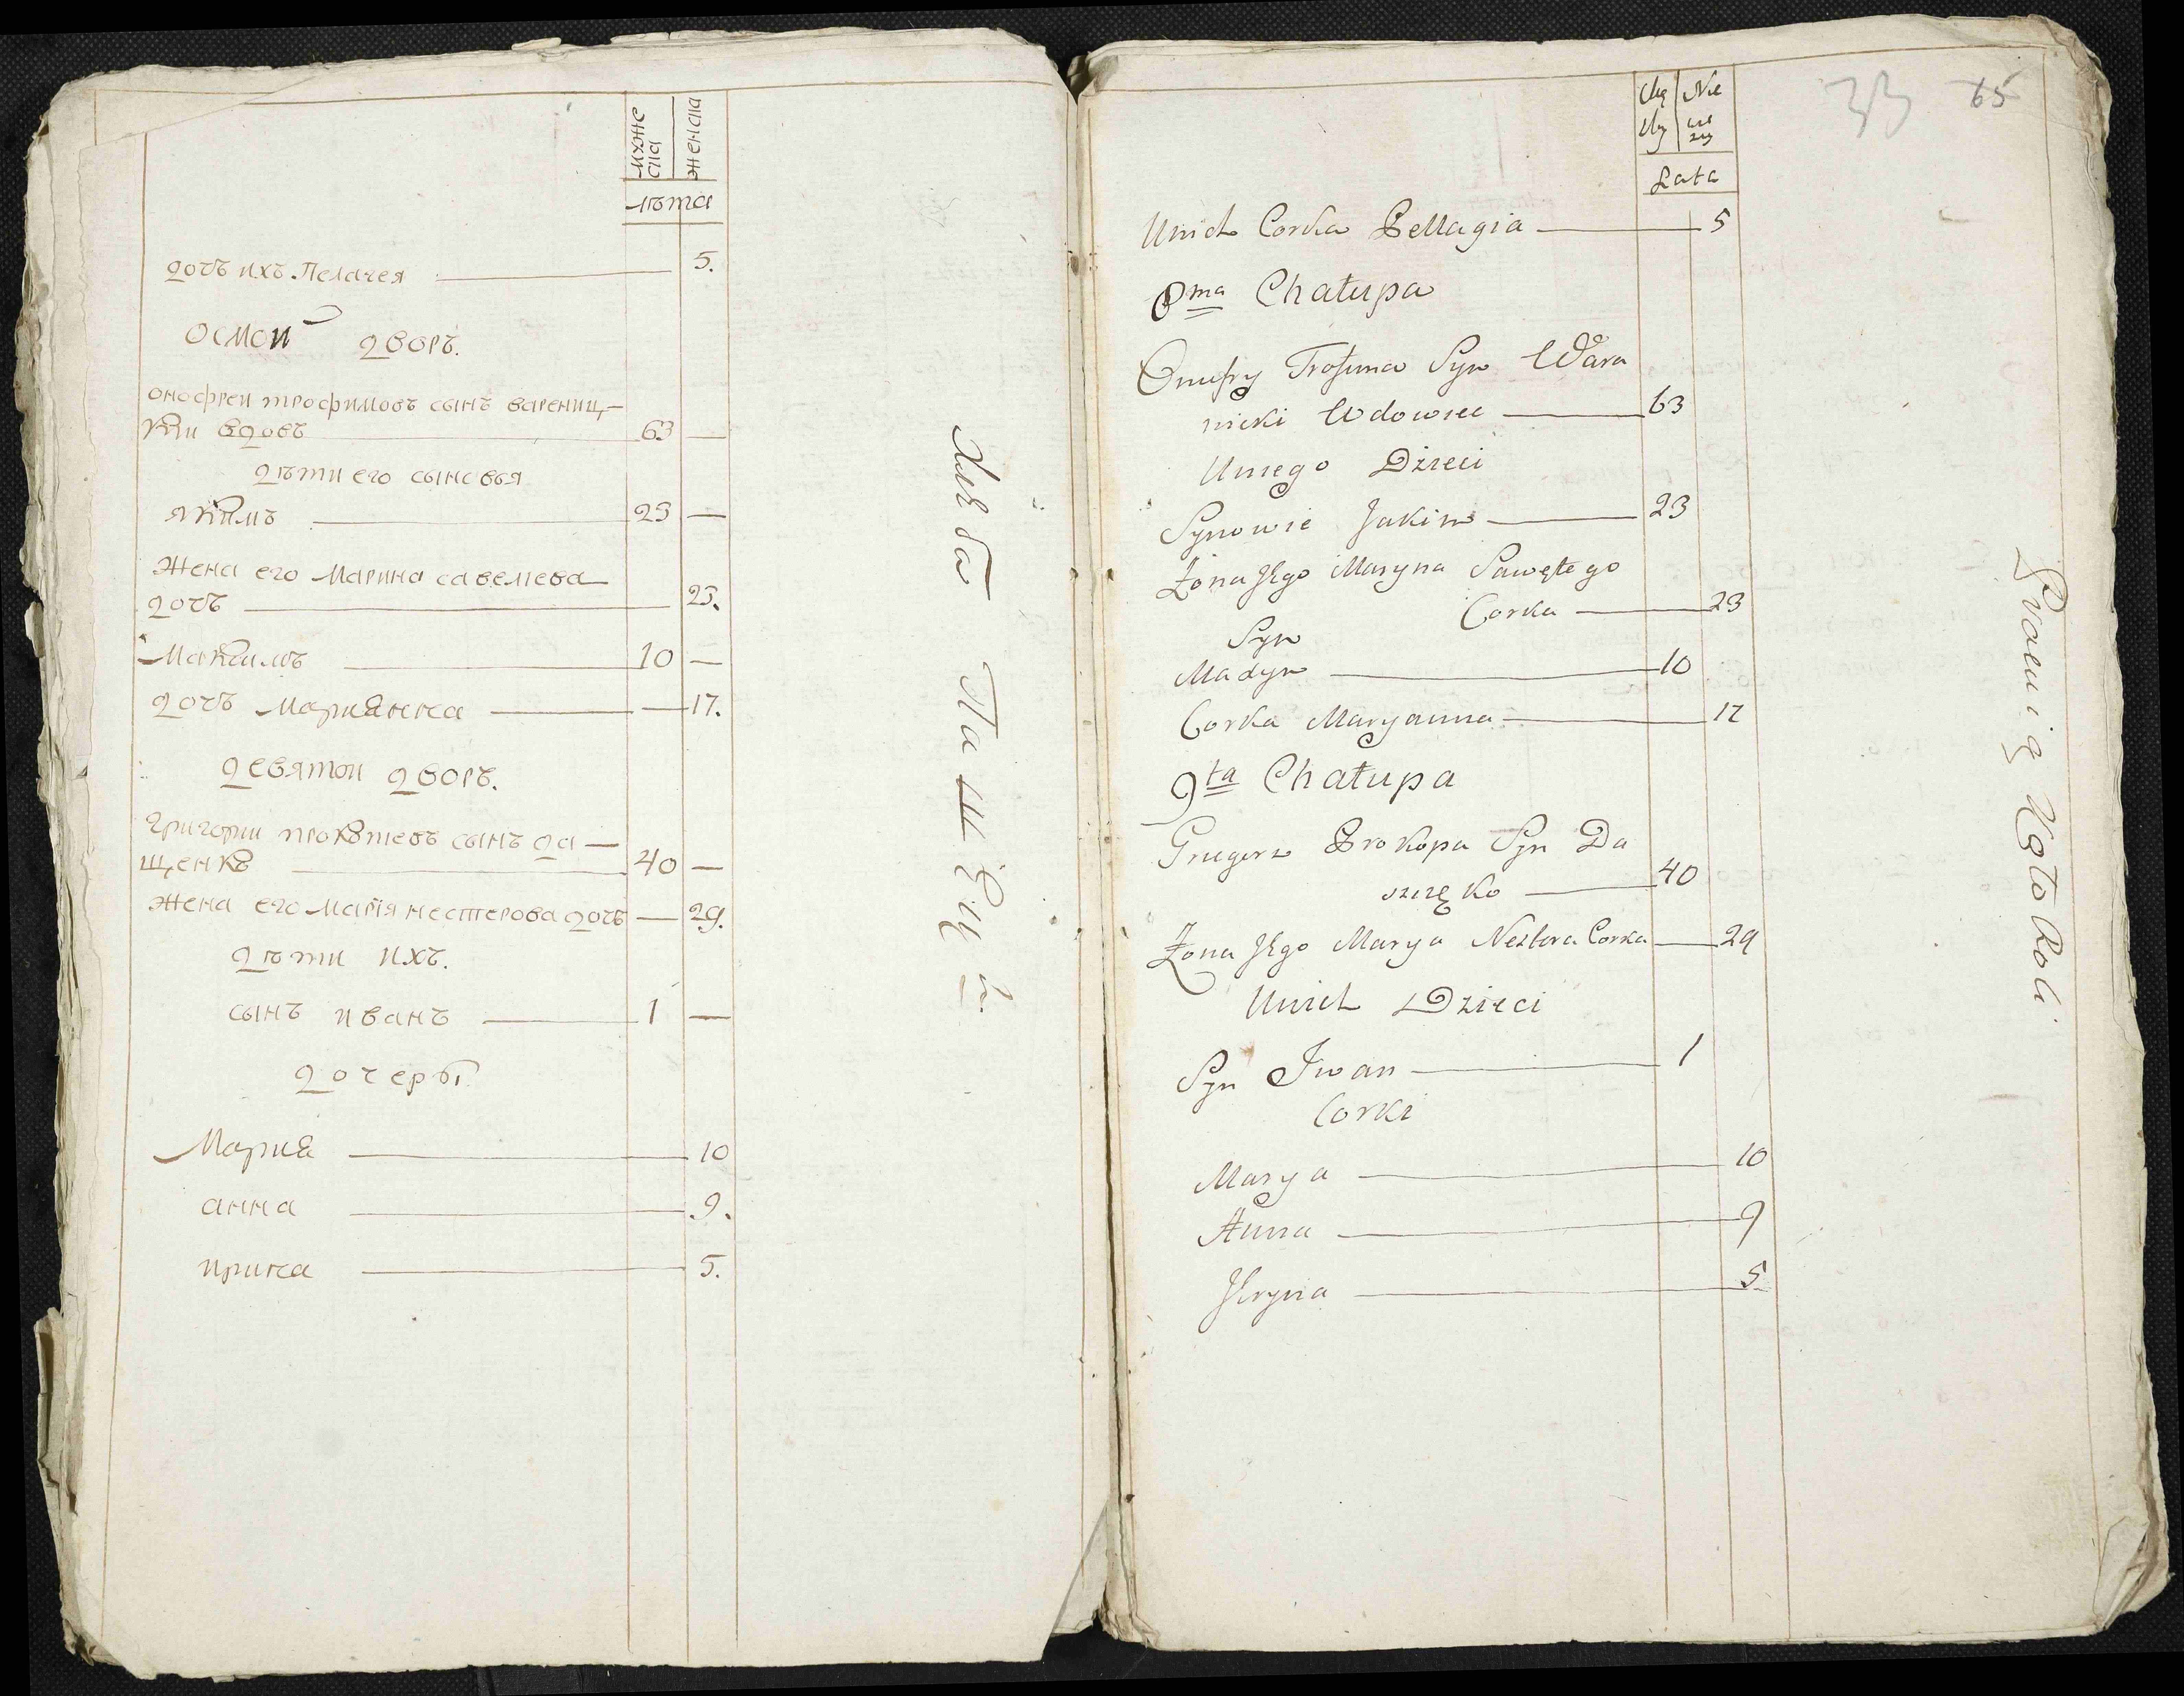 мужеска
женска
лѣта
дочь ихъ Пелагея 5.
осмой дворъ.
онофреи трофимовъ сынъ варениц-
кии вдовъ 63 —
дѣти его сыновья
якимъ 23 —
жена его Марина савелиева
дочь 23.
Максимъ 10 —
дочь Марианна — 17.
девятои дворъ.
григории прокопиевъ сынъ да —
щенко 40 —
жена его мария нестерова дочь — 29.
дѣти ихъ.
сынъ иванъ 1 —
дочеры
Мариа 10
анна 9.
ирина 5.
Хлѣба
33 65
Lata
Unich Corka Pellagia 5
8ma Chałupa
Onufry Trofima Syn Wara
nicki Wdowiec 63
Uniego Dzieci
Synowie Jakim 23
Żona Jego Maryna Sawętego
Corka 23
Syn
Maxym 10
Corka Maryanna 17
9ta Chałupa
Griegorz Prokopa Syn Da
szczęko 40
Żona Jego Marya Nestera Corka 29
Unich Dzieci
Syn Iwan 1
Corki
Marya 10
Anna 9
Jryna 5